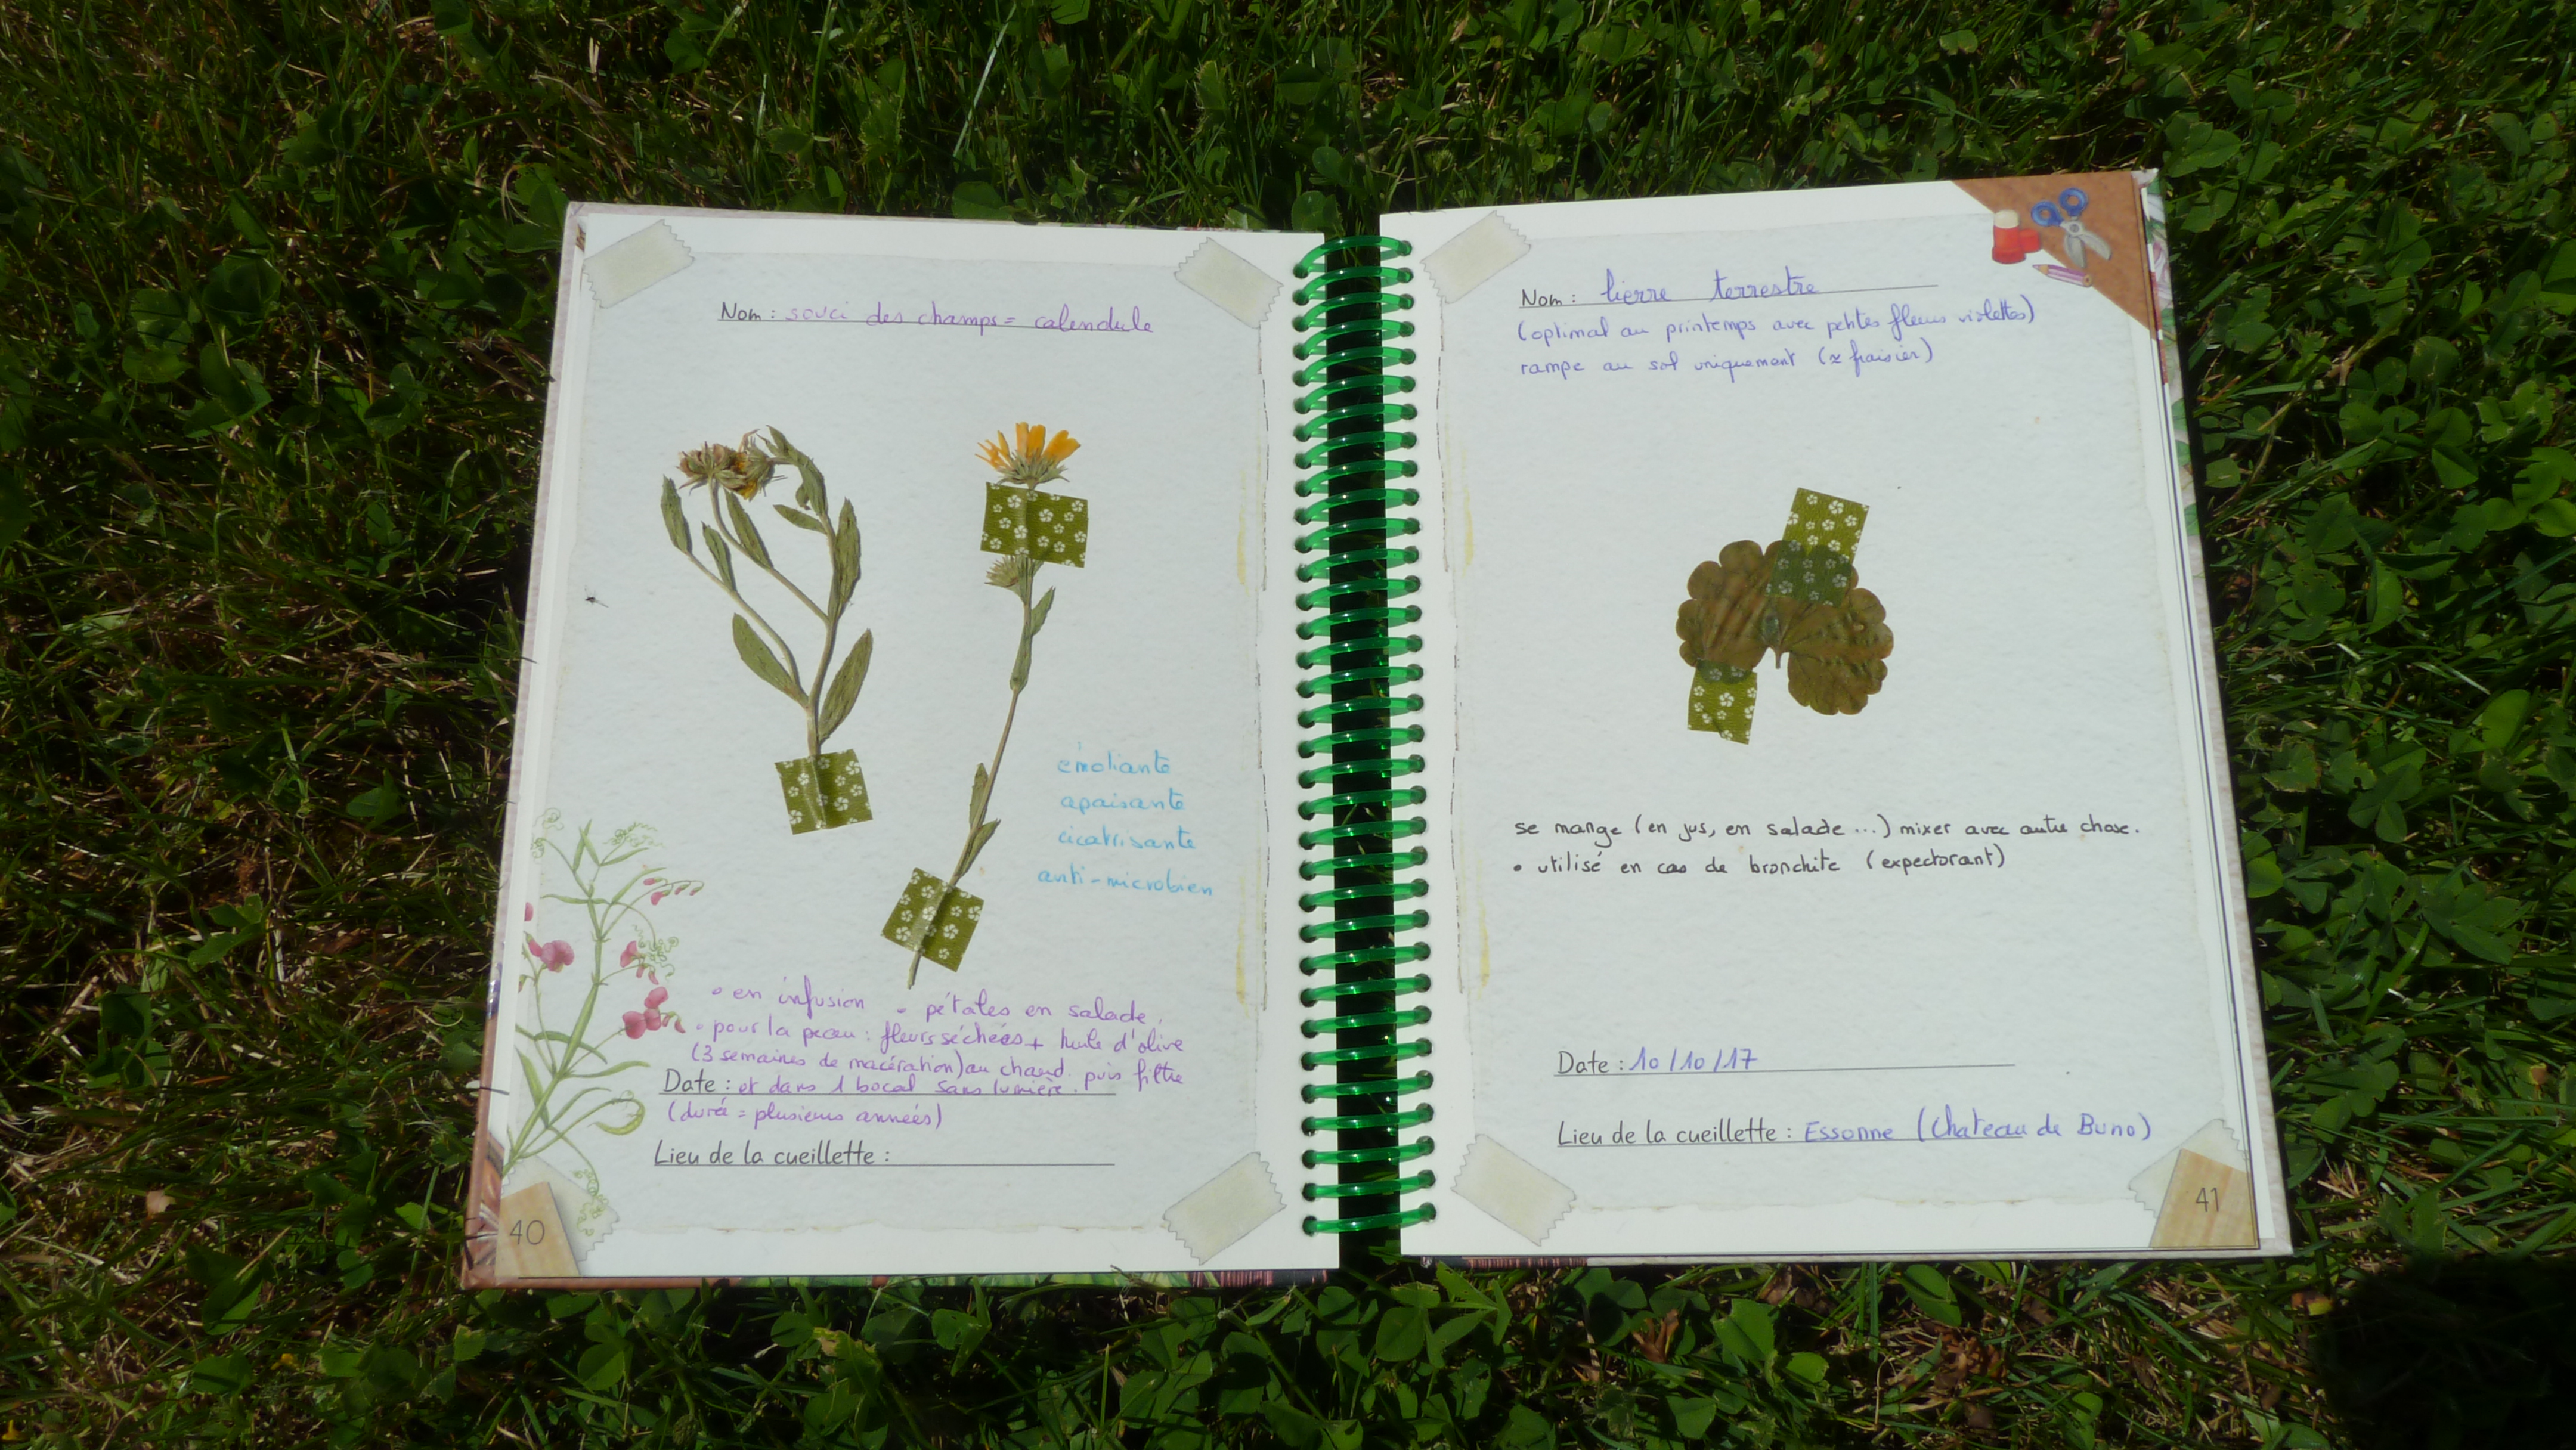 Nom : souci des champs = calendule
émoliante
apaisante
cicatrisante
anti-microbien
• en infusion • pétales en salade.
• pour la peau : fleurs séchées + huile d'olive
(3 semaines de macération) au chaud. puis filtre
Date : et dans 1 bocal sans lumière.
(durée = plusieurs années)
Lieu de la cueillette :
40
Nom : lierre terrestre
(optimal au printemps avec petites fleurs violettes)
rampe au sol uniquement (≈ fraisier)
se mange (en jus, en salade ...) mixer avec autre chose.
• utilisé en cas de bronchite (expectorant)
Date : 10/10/17
Lieu de la cueillette : Essonne (Chateau de Buno)
41